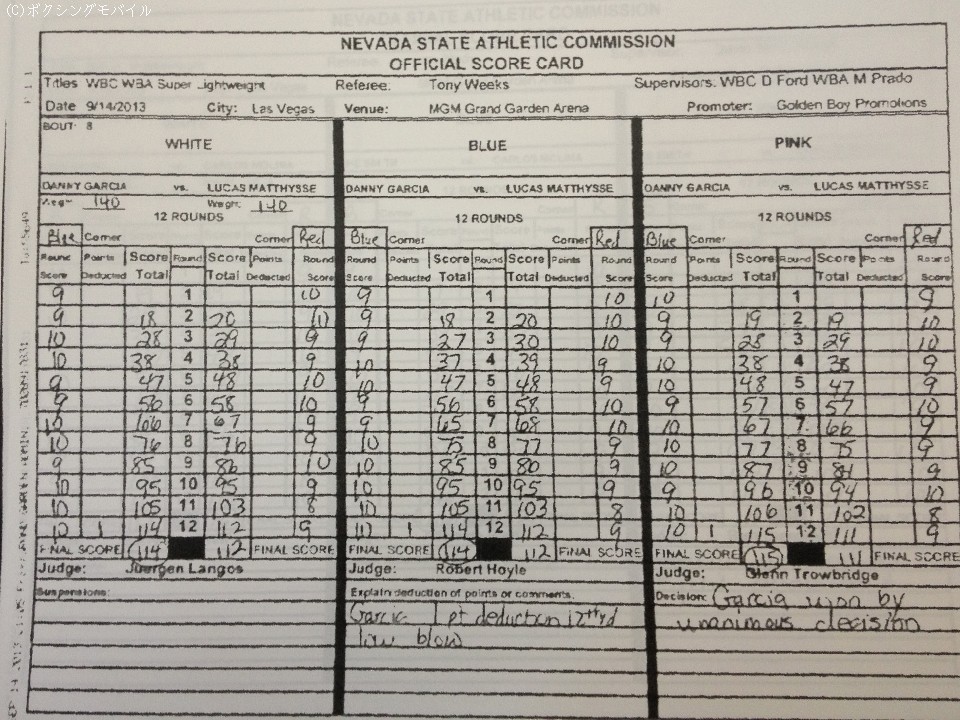 (C)ボクシングモバイル
NEVADA STATE ATHLETIC COMMISSION
OFFICIAL SCORE CARD
Titles WBC WBA Super Lightweight Referee: Tony Weeks Supervisors: WBC D Ford WBA M Prado
Date 9/14/2013 City: Las Vegas Venue: MGM Grand Garden Arena Promoter: Golden Boy Promotions
BOUT: 8
WHITE BLUE PINK
DANNY GARCIA vs. LUCAS MATTHYSSE DANNY GARCIA vs. LUCAS MATTHYSSE DANNY GARCIA vs. LUCAS MATTHYSSE
140 Weight: 140
12 ROUNDS 12 ROUNDS 12 ROUNDS
Blue Corner Corner Red Blue Corner Corner Red Blue Corner Corner Red
Round Points Score Round Score Points Round Round Points Score Round Score Points Round Round Points Score Round Score Points Round
Score Deducted Total Total Deducted Score Score Deducted Total Total Deducted Score Score Deducted Total Total Deducted Score
9 1 10 9 1 10 10 1 9
9 18 2 20 10 9 18 2 20 10 9 19 2 19 10
10 28 3 29 9 9 27 3 30 10 9 28 3 29 10
10 38 4 38 9 10 37 4 39 9 10 38 4 38 9
9 47 5 48 10 10 47 5 48 9 10 48 5 47 9
9 56 6 58 10 9 56 6 58 10 9 57 6 57 10
10 66 7 67 9 9 65 7 68 10 10 67 7 66 9
10 76 8 76 9 10 75 8 77 9 10 77 8 75 9
9 85 9 86 10 10 85 9 86 9 10 87 9 84 9
10 95 10 95 9 10 95 10 95 9 9 96 10 94 10
10 105 11 103 8 10 105 11 103 8 10 106 11 102 8
10 114 12 112 9 10 1 114 12 112 9 10 1 115 12 111 9
FINAL SCORE 114 112 FINAL SCORE FINAL SCORE 114 112 FINAL SCORE FINAL SCORE 115 111 FINAL SCORE
Judge: Juergen Langos Judge: Robert Hoyle Judge: Glenn Trowbridge
Suspensions: Explain deduction of points or comments: Decision: Garcia won by
Garcia 1 pt deduction 12th rd unanimous decision
low blow